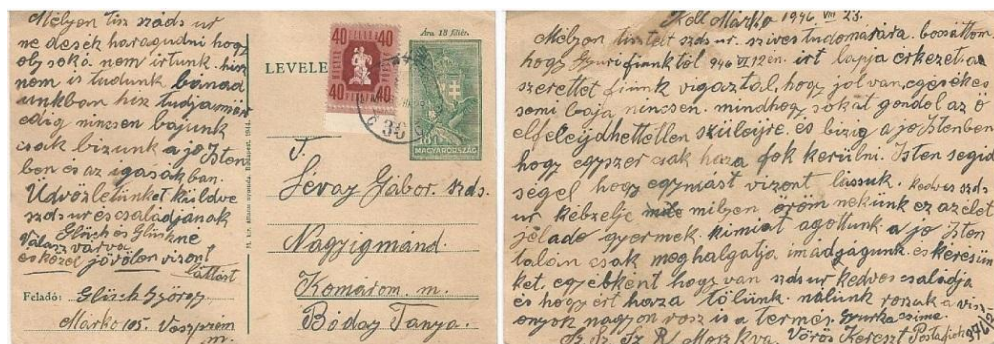 Mélyen tisz száds ur
ne desék haragudni hogy
oly soká nem irtunk. hisz
nem is tudunk bánad
unkban hisz tudja mér
edig nincsen bajunk
csak bizunk a jo Isten
ben és az igasákban.
Üdvözletünket küldve
szds ur és családjának
Glück és Glückné
Válasz várva
és közel jövölen visont
Látlást
Feladó: Glück György
Márko 105. Veszprém
m.
Ára 18 fillér.
LEVELE
40 40
40 40
18 f
MAGYARORSZÁG
T.
Sévay Gábor szds.
Nagyigmánd
Komárom. m.
Bóday Tanya.
Kelt Márko 1946 VIII 23.
Mélyen tisztelt szds ur. szives tudomására bocsáttom
hogy Gyurifiunktól 946 VI 12 én. irt lapja érkezet. a
szerettet fiunk vigaztal, hogy jól van, egéséges
semi baja nincsen. mindhogy sokat gondol az ő
elfeleijdhettetlen szüleijre. és bizig a jo Istenben
hogy egyszer csak haza fok kerülni. Isten segid
ségel hogy egymást vizont lássuk. kedves szds
ur kébzelje milyen öröm nekünk ez az élet
jélado gyermek. kimiat agottunk a jo Isten
talán csak meghalgatja imádgagunk és kérésün
ket, egyébként hogy van szds ur kedves családja
és hogy ért haza tőlünk. nálunk roszak a visz
onyok nagyon rosz is a termés. Gyurka cime.
Sz. Sz. Sz. R. Moszkva. Vörös Kereszt Postafiok